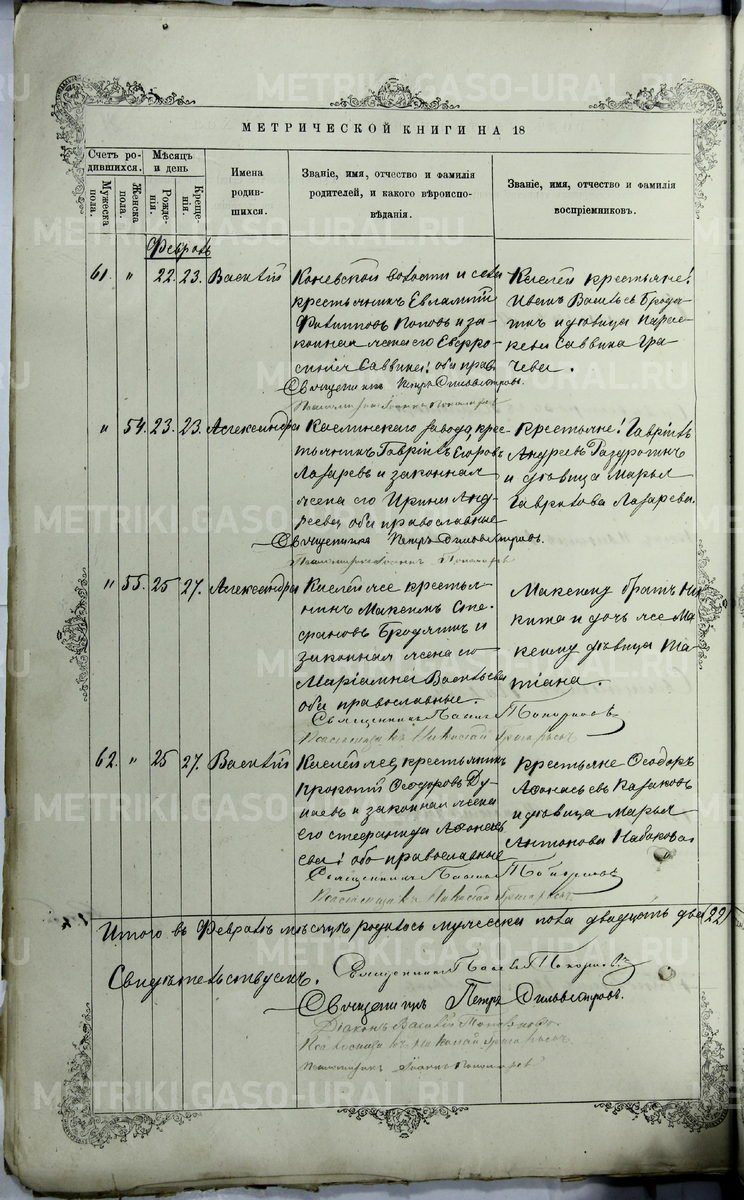 МЕТРИЧЕСКОЙ КНИГИ НА 18
Счетъ родившихся.
Мужеска пола.
Женска пола.
Мѣсяцъ и день
Рожденія.
Крещенія.
Имена родившихся.
Званіе, имя, отчество и фамилія родителей, и какого вѣроисповѣданія.
Званіе, имя, отчество и фамилія воспріемниковъ.
Февраль
61. " 22. 23. Василій
Коневской волости и села
крестьянинъ Евлампій
Филипповъ Поповъ и за-
конная жена его Евфро-
синія Саввина; оба прав.
Священникъ Петръ Сильвестровъ.
Псаломщикъ Іоаннъ Пономаревъ
Каслей крестьяне:
Иванъ Васильевъ Бродя-
гинъ и дѣвица Парас-
кева Саввина Гра-
чева.
" 54. 23. 23. Александра
Каслинскаго завода, крес-
тьянинъ Гавріилъ Егоровъ
Лазаревъ и законная
жена его Ирина Анд-
реева, оба православные
Священникъ Петръ Сильвестровъ.
Псаломщикъ Іоаннъ Пономаревъ
Крестьяне: Гавріилъ
Андреевъ
и дѣвица Марья
Гаврилова Лазарева.
" 55. 25 27. Александра
Каслей же крестья-
нинъ Максимъ Сте-
фановъ Бродягинъ и
законная жена его
Маріамна Васильева
оба православные.
Священникъ
Псаломщикъ Николай
Максиму братъ Ни-
кита и дочь же Ма-
ксиму дѣвица Та-
тіана.
62. " 25 27. Василій
Каслей же, крестьянинъ
Прокопій Ѳеодоровъ Ду-
наевъ и законная жена
его Стефанида Аѳонась-
ева; оба православные
Священникъ
Псаломщикъ Николай
Крестьяне Ѳеодоръ
Аѳонасьевъ Казаковъ
и дѣвица Марья
Антонова Набокова.
Итого въ Февралѣ мѣсяцѣ родилось мужеска пола двадцать два (22)
Свидѣтельствуемъ. Священникъ
Священникъ Петръ Сильвестровъ.
Діаконъ Василій
Псаломщикъ Николай
Псаломщикъ Іоаннъ Пономаревъ
METRIKI.GASO-URAL.RU